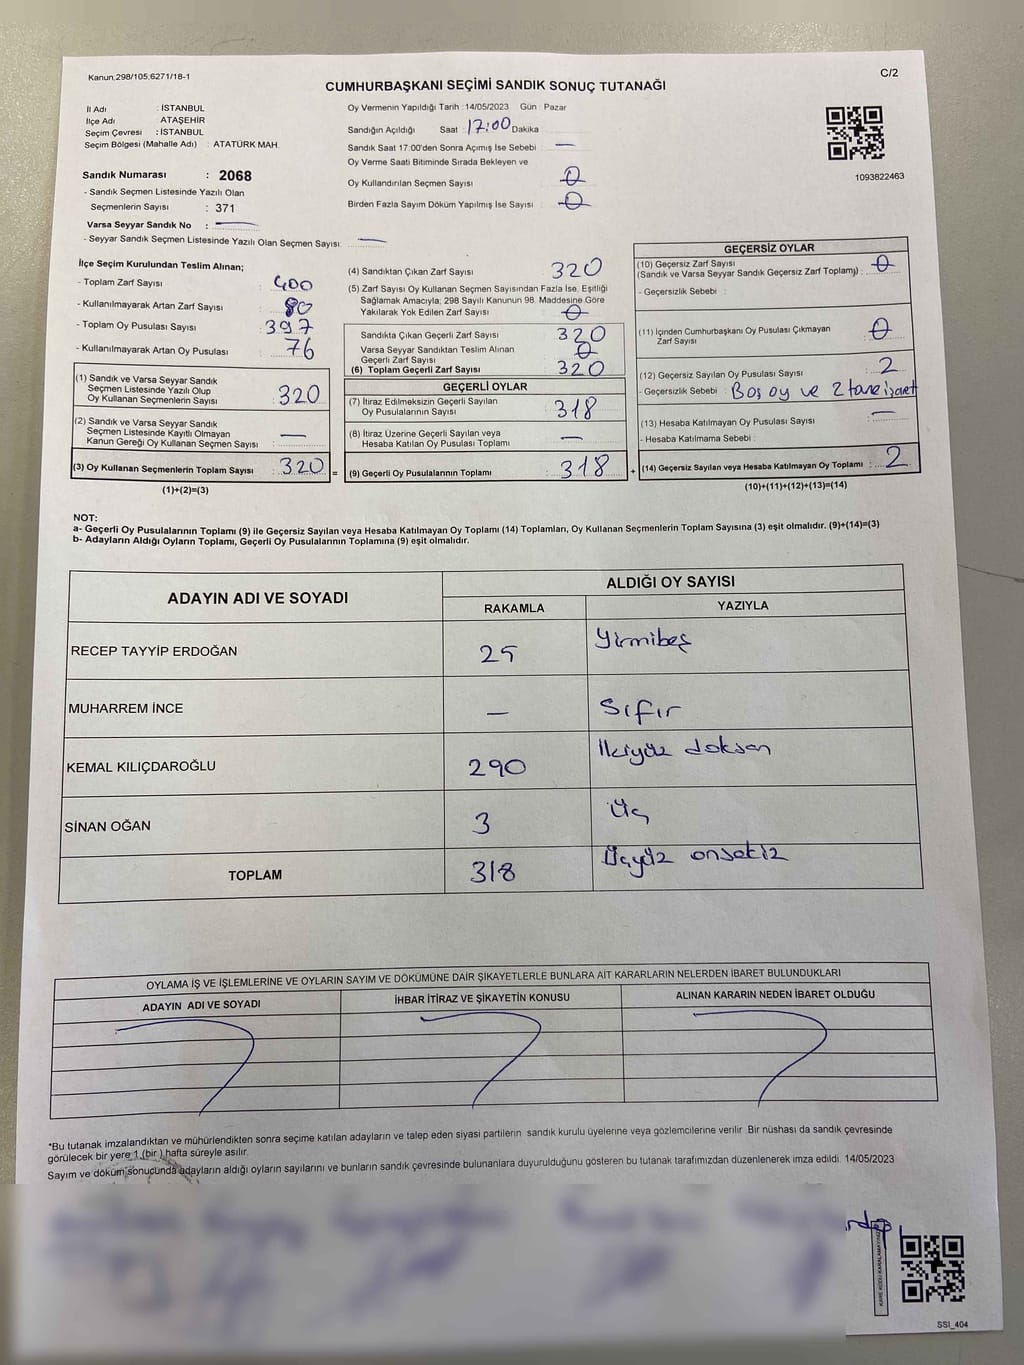 Kanun.298/105,6271/18-1
C/2
CUMHURBAŞKANI SEÇİMİ SANDIK SONUÇ TUTANAĞI
İl Adı : İSTANBUL
İlçe Adı ATAŞEHİR
Seçim Çevresi : İSTANBUL
Seçim Bölgesi (Mahalle Adı) : ATATÜRK MAH.
Sandık Numarası : 2068
- Sandık Seçmen Listesinde Yazılı Olan
Seçmenlerin Sayısı : 371
Varsa Seyyar Sandık No : —
- Seyyar Sandık Seçmen Listesinde Yazılı Olan Seçmen Sayısı: —
Oy Vermenin Yapıldığı Tarih :14/05/2023 Gün : Pazar
Sandığın Açıldığı Saat 17:00 Dakika
Sandık Saat 17:00'den Sonra Açımış İse Sebebi —
Oy Verme Saati Bitiminde Sırada Bekleyen ve
Oy Kullandırılan Seçmen Sayısı 0
Birden Fazla Sayım Döküm Yapılmış İse Sayısı 0
1093822463
İlçe Seçim Kurulundan Teslim Alınan;
- Toplam Zarf Sayısı : 400
- Kullanılmayarak Artan Zarf Sayısı : 80
- Toplam Oy Pusulası Sayısı : 397
- Kullanılmayarak Artan Oy Pusulası : 76
(1) Sandık ve Varsa Seyyar Sandık
Seçmen Listesinde Yazılı Olup
Oy Kullanan Seçmenlerin Sayısı : 320
(2) Sandık ve Varsa Seyyar Sandık
Seçmen Listesinde Kayıtlı Olmayan
Kanun Gereği Oy Kullanan Seçmen Sayısı : —
(3) Oy Kullanan Seçmenlerin Toplam Sayısı : 320 =
(1)+(2)=(3)
(4) Sandıktan Çıkan Zarf Sayısı 320
(5) Zarf Sayısı Oy Kullanan Seçmen Sayısından Fazla İse, Eşitliği
Sağlamak Amacıyla; 298 Sayılı Kanunun 98. Maddesine Göre
Yakılarak Yok Edilen Zarf Sayısı : 0
Sandıkta Çıkan Geçerli Zarf Sayısı : 320
Varsa Seyyar Sandıktan Teslim Alınan
Geçerli Zarf Sayısı : 0
(6) Toplam Geçerli Zarf Sayısı : 320
GEÇERLİ OYLAR
(7) İtiraz Edilmeksizin Geçerli Sayılan
Oy Pusulalarının Sayısı : 318
(8) İtiraz Üzerine Geçerli Sayılan veya
Hesaba Katılan Oy Pusulası Toplamı : —
(9) Geçerli Oy Pusulalarının Toplamı : 318 +
GEÇERSİZ OYLAR
(10) Geçersiz Zarf Sayısı
(Sandık ve Varsa Seyyar Sandık Geçersiz Zarf Toplamı) : 0
- Geçersizlik Sebebi :
(11) İçinden Cumhurbaşkanı Oy Pusulası Çıkmayan
Zarf Sayısı : 0
(12) Geçersiz Sayılan Oy Pusulası Sayısı : 2
- Geçersizlik Sebebi : Boş oy ve 2 tane işaret
(13) Hesaba Katılmayan Oy Pusulası Sayısı : —
- Hesaba Katılmama Sebebi :
(14) Geçersiz Sayılan veya Hesaba Katılmayan Oy Toplamı : 2
(10)+(11)+(12)+(13)=(14)
NOT:
a- Geçerli Oy Pusulalarının Toplamı (9) ile Geçersiz Sayılan veya Hesaba Katılmayan Oy Toplamı (14) Toplamları, Oy Kullanan Seçmenlerin Toplam Sayısına (3) eşit olmalıdır. (9)+(14)=(3)
b- Adayların Aldığı Oyların Toplamı, Geçerli Oy Pusulalarının Toplamına (9) eşit olmalıdır.
ADAYIN ADI VE SOYADI
ALDIĞI OY SAYISI
RAKAMLA YAZIYLA
RECEP TAYYİP ERDOĞAN 25 Yirmibeş
MUHARREM İNCE — Sıfır
KEMAL KILIÇDAROĞLU 290 İkiyüz doksan
SİNAN OĞAN 3 Üç
TOPLAM 318 Üçyüz onsekiz
OYLAMA İŞ VE İŞLEMLERİNE VE OYLARIN SAYIM VE DÖKÜMÜNE DAİR ŞİKAYETLERLE BUNLARA AİT KARARLARIN NELERDEN İBARET BULUNDUKLARI
ADAYIN ADI VE SOYADI İHBAR İTİRAZ VE ŞİKAYETİN KONUSU ALINAN KARARIN NEDEN İBARET OLDUĞU
*Bu tutanak imzalandıktan ve mühürlendikten sonra seçime katılan adayların ve talep eden siyasi partilerin sandık kurulu üyelerine veya gözlemcilerine verilir. Bir nüshası da sandık çevresinde
görülecek bir yere 1 (bir) hafta süreyle asılır.
Sayım ve döküm sonucunda adayların aldığı oyların sayılarını ve bunların sandık çevresinde bulunanlara duyurulduğunu gösteren bu tutanak tarafımızdan düzenlenerek imza edildi. 14/05/2023
KARE KODU KARALAMAYINIZ
SSI_404